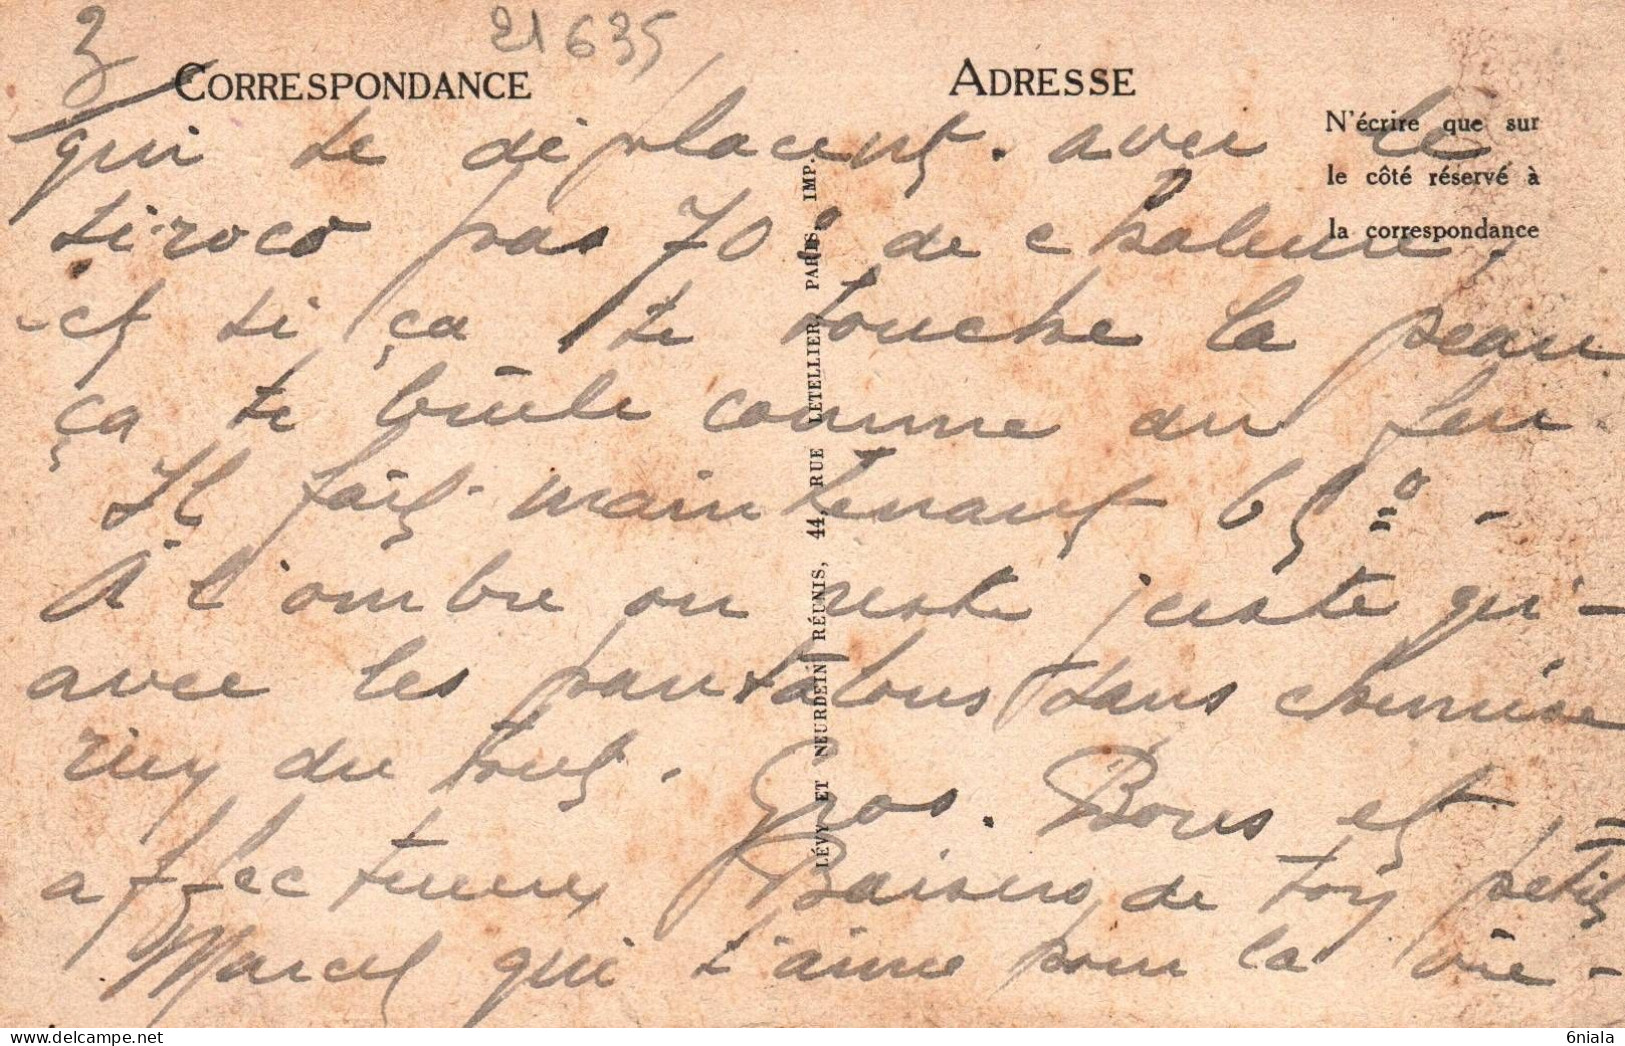 3
21635
CORRESPONDANCE
ADRESSE
N'écrire que sur
le côté réservé à
la correspondance
qui se déplacent. avec le
siroco pas 70° de chaleur,
et si ça te touche la peau
ça te brûle comme du feu.
Il fait maintenant 65° -
À l'ombre on reste juste qu'-
avec les pantalons sans chemise
rien du tout. Gros. Bons et
affectueux Baisers de toy petit
Marcel qui t'aime pour la vie -
LÉVY ET NEURDEIN RÉUNIS, 44, RUE LETELLIER, PARIS. IMP.
6niala